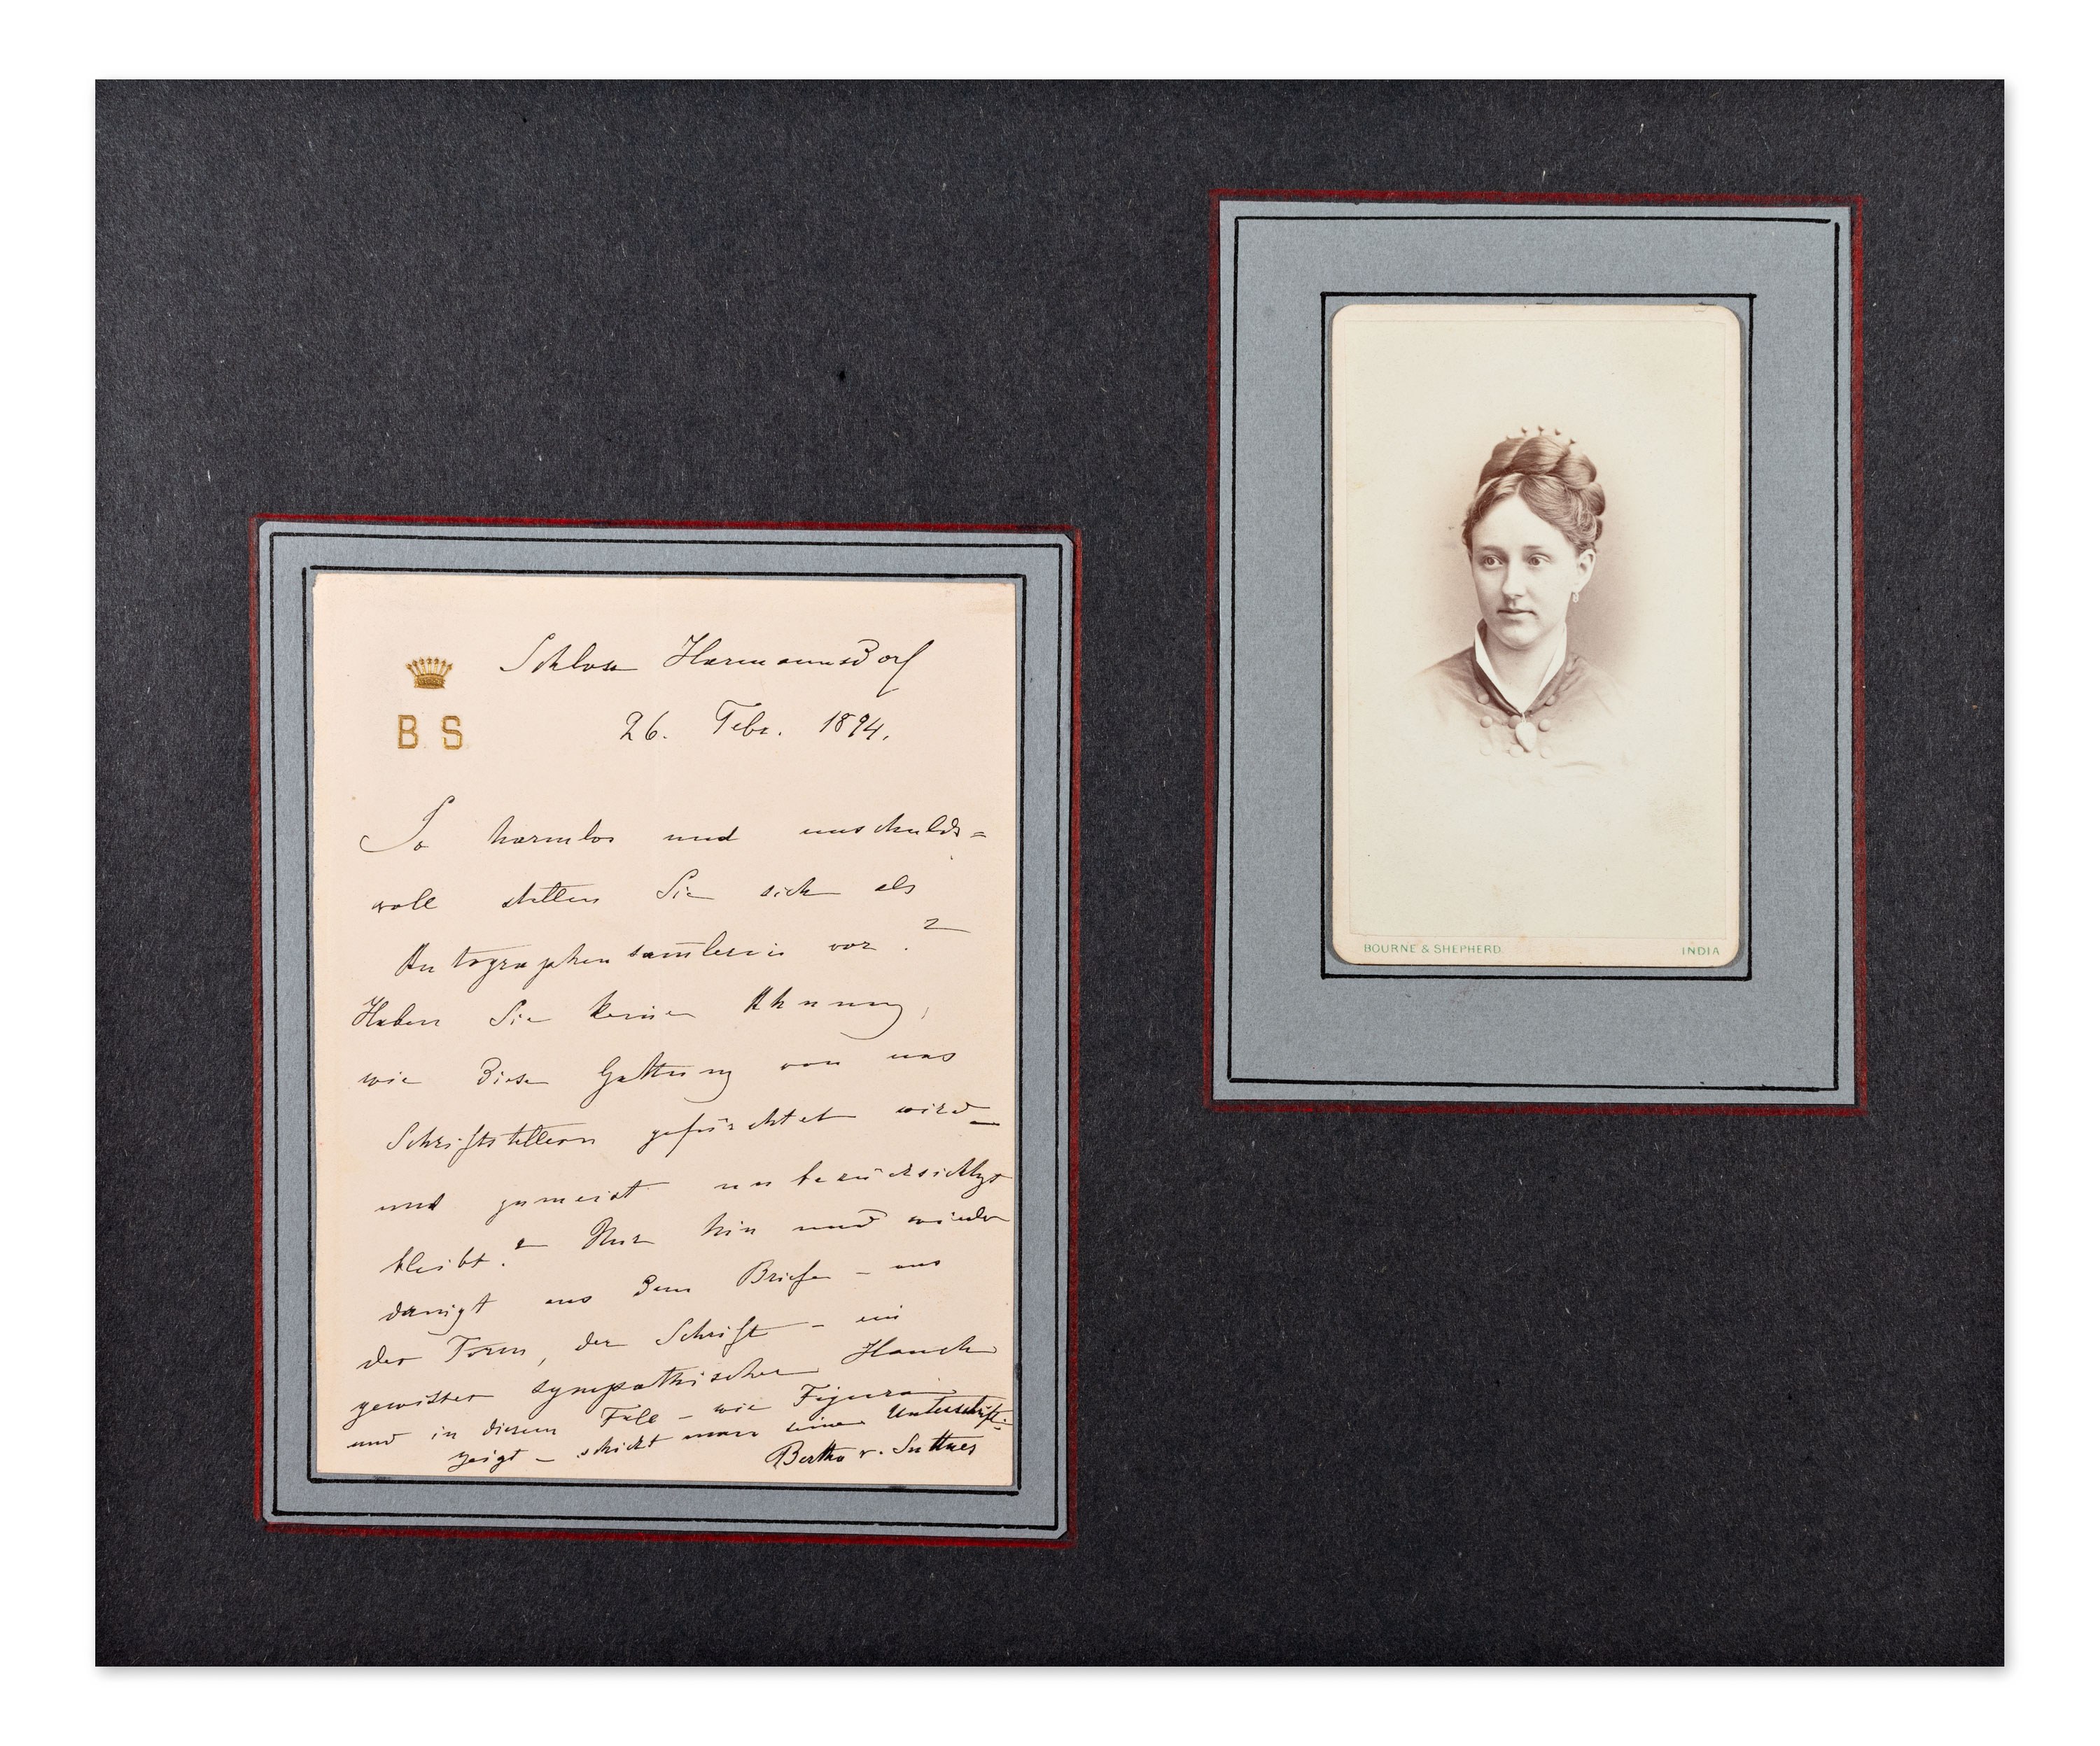 B S
Schloss Harmannsdorf
26. Febr. 1894.
So harmlos und unschulds=
voll stellen Sie sich als
Autographensam̅lerin vor.?
Haben Sie keine Ahnung,
wie diese Gattung von uns
Schriftstellern gefürchtet wird –
und zumeist unberücksichtigt
bleibt.? Nur hin und wieder
dringt aus dem Briefe – aus
der Form, der Schrift – ein
gewisser sympathischer Hauch
und in diesem Fall – wie Figura
zeigt – schickt man seine Unterschrift.
Bertha v. Suttner
BOURNE & SHEPHERD. INDIA